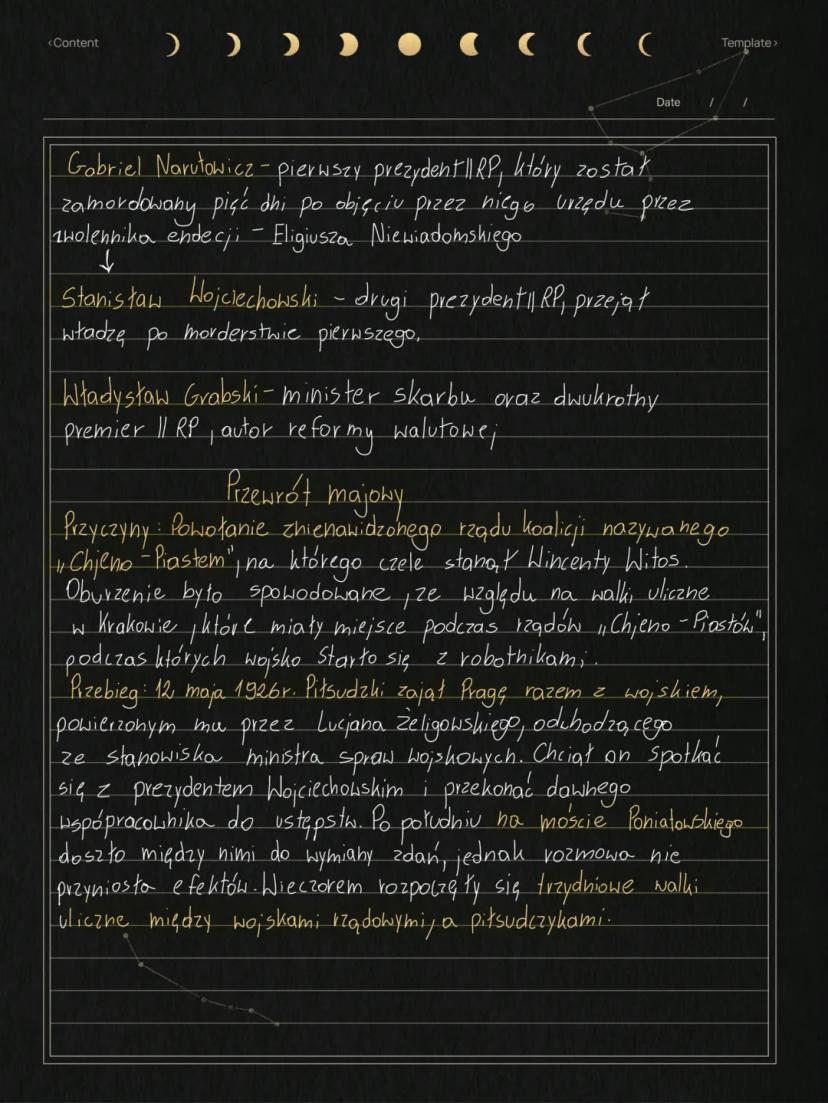 ‹Content
Template›
Date / /
Gabriel Narutowicz – pierwszy prezydent II RP, który został
zamordowany pięć dni po objęciu przez niego urzędu przez
zwolennika endecji – Eligiusza Niewiadomskiego
↓
Stanisław Wojciechowski – drugi prezydent II RP, przejął
władzę po morderstwie pierwszego.
Władysław Grabski – minister skarbu oraz dwukrotny
premier II RP, autor reformy walutowej
Przewrót majowy
Przyczyny: Powołanie znienawidzonego rządu koalicji nazywanego
„Chjeno-Piastem", na którego czele stanął Wincenty Witos.
Oburzenie było spowodowane, ze względu na walki uliczne
w Krakowie, które miały miejsce podczas rządów „Chjeno-Piastów",
podczas których wojsko starło się z robotnikami.
Przebieg: 12 maja 1926r. Piłsudzki zajął Pragę razem z wojskiem,
powierzonym mu przez Lucjana Żeligowskiego, odchodzącego
ze stanowiska ministra spraw wojskowych. Chciał on spotkać
się z prezydentem Wojciechowskim i przekonać dawnego
współpracownika do ustępstw. Po południu na moście Poniatowskiego
doszło między nimi do wymiany zdań, jednak rozmowa nie
przyniosła efektów. Wieczorem rozpoczęły się trzydniowe walki
uliczne między wojskami rządowymi, a piłsudczykami.